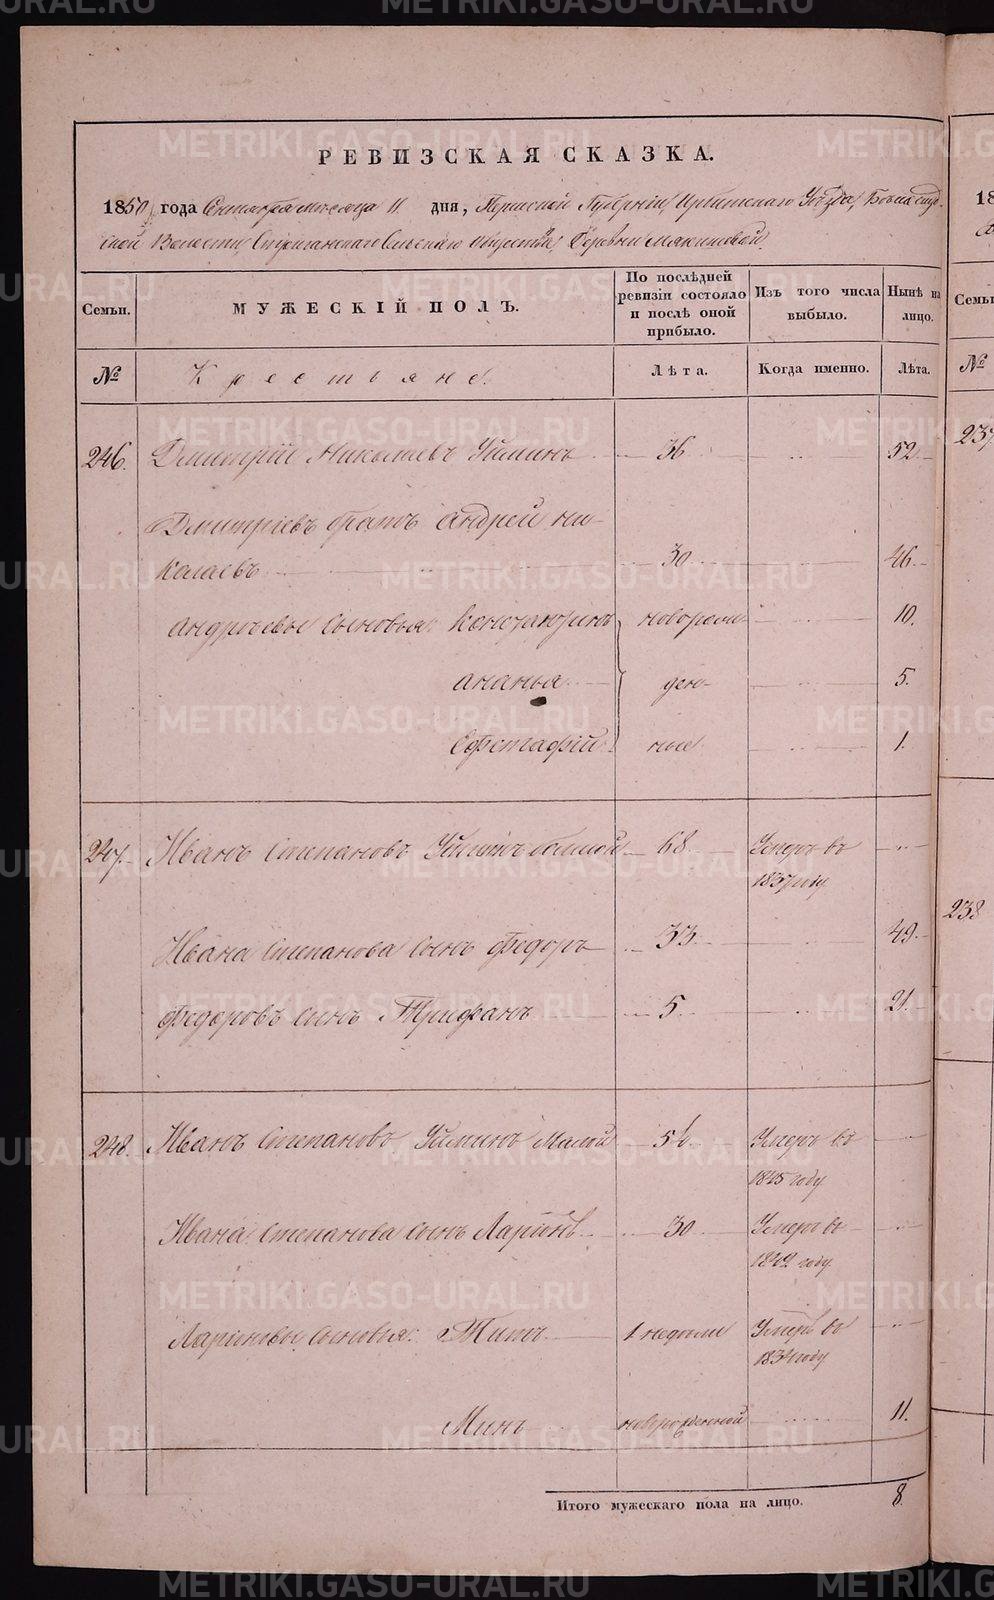 РЕВИЗСКАЯ СКАЗКА.
1850 года Сентября месяца 11 дня, Пермской Губернiи, Ирбитскаго Уѣзда,
ской Волости, Сельскаго общества, Деревни Мякишевой.
Семьи.
МУЖЕСКIЙ ПОЛЪ.
По послѣдней ревизiи состояло и послѣ оной прибыло.
Изъ того числа выбыло.
Нынѣ на лицо.
№
Крестьяне.
Лѣта.
Когда именно.
Лѣта.
246. Дмитрiй Николаевъ Уйминъ 36 52.
Дмитрiевъ братъ Андрей Ни-
колаевъ 30 46.
Андрѣевы сыновья: Константинъ новорож- 10.
Ананья ден- 5.
Евстафiй ные 1.
247. Иванъ Степановъ Уйминъ большой 68 Умеръ въ
1837 году
Ивана Степанова сынъ Федоръ 33 49.
Федоровъ сынъ Трифанъ 5 21.
248. Иванъ Степановъ Уйминъ Малой Умеръ въ
1845 году
Ивана Степанова сынъ Ларiонъ 30 Умеръ въ
1842 году
Ларiоновы сыновья: Титъ 1 недѣли Умеръ въ
году
Минъ новорожденной 11.
Итого мужескаго пола на лицо. 8
18
Семьи
№
237
238
METRIKI.GASO-URAL.RU